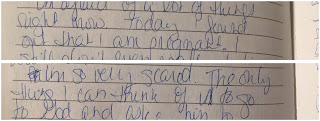 afraid of a lot of things
right now. Today found
out that I am pregnant. I
still
I'm so very scared. The only
thing I can think of is to go
to God and ask him to